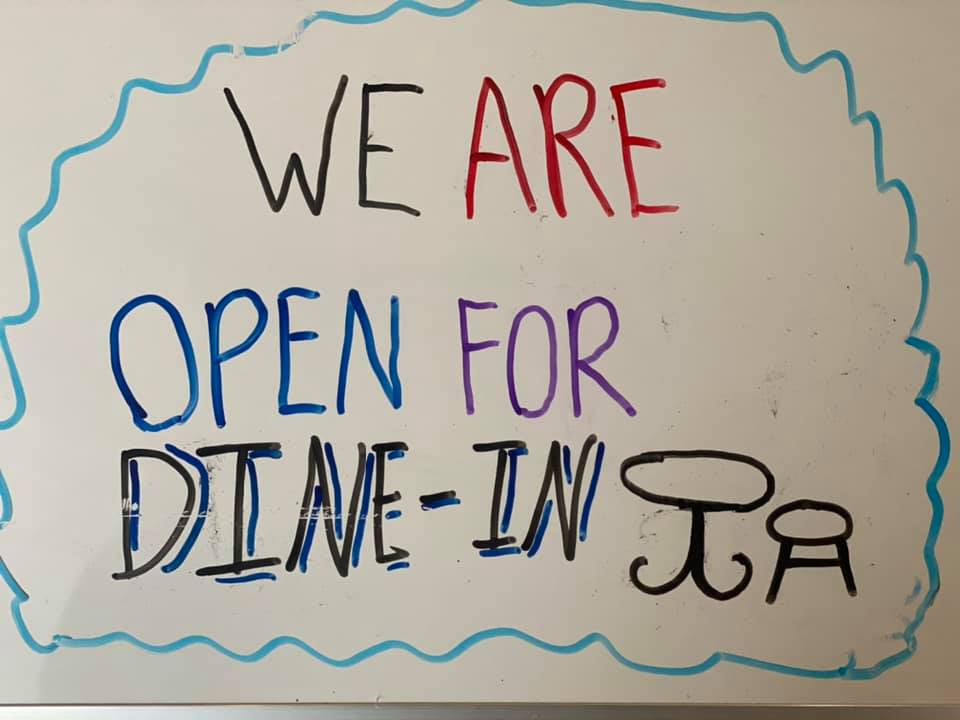 WE ARE
OPEN FOR
DINE-IN